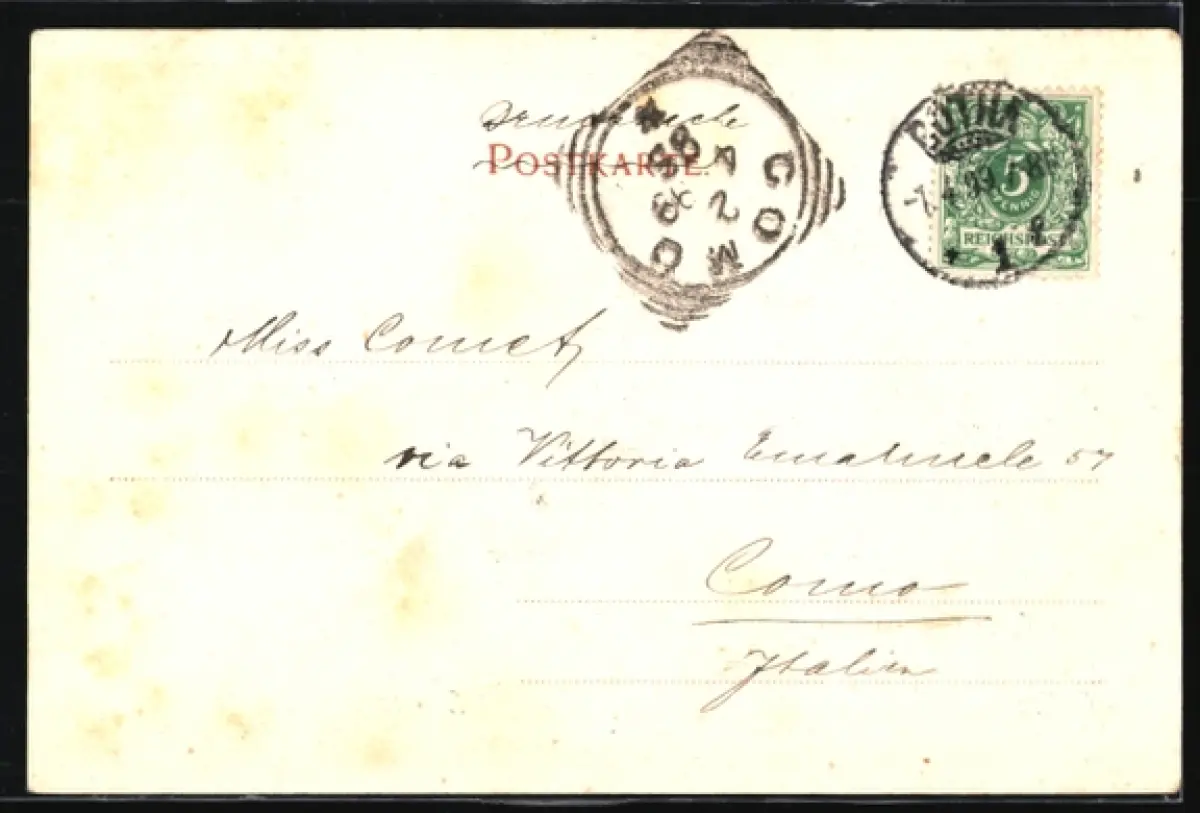 Drucksache
POSTKARTE.
COMO
GOTHA
7.4.99.5-8N
1
5
PFENNIG
REICHSPOST
Miss Comet
via Vittoria Emanuele 57
Como
Italien